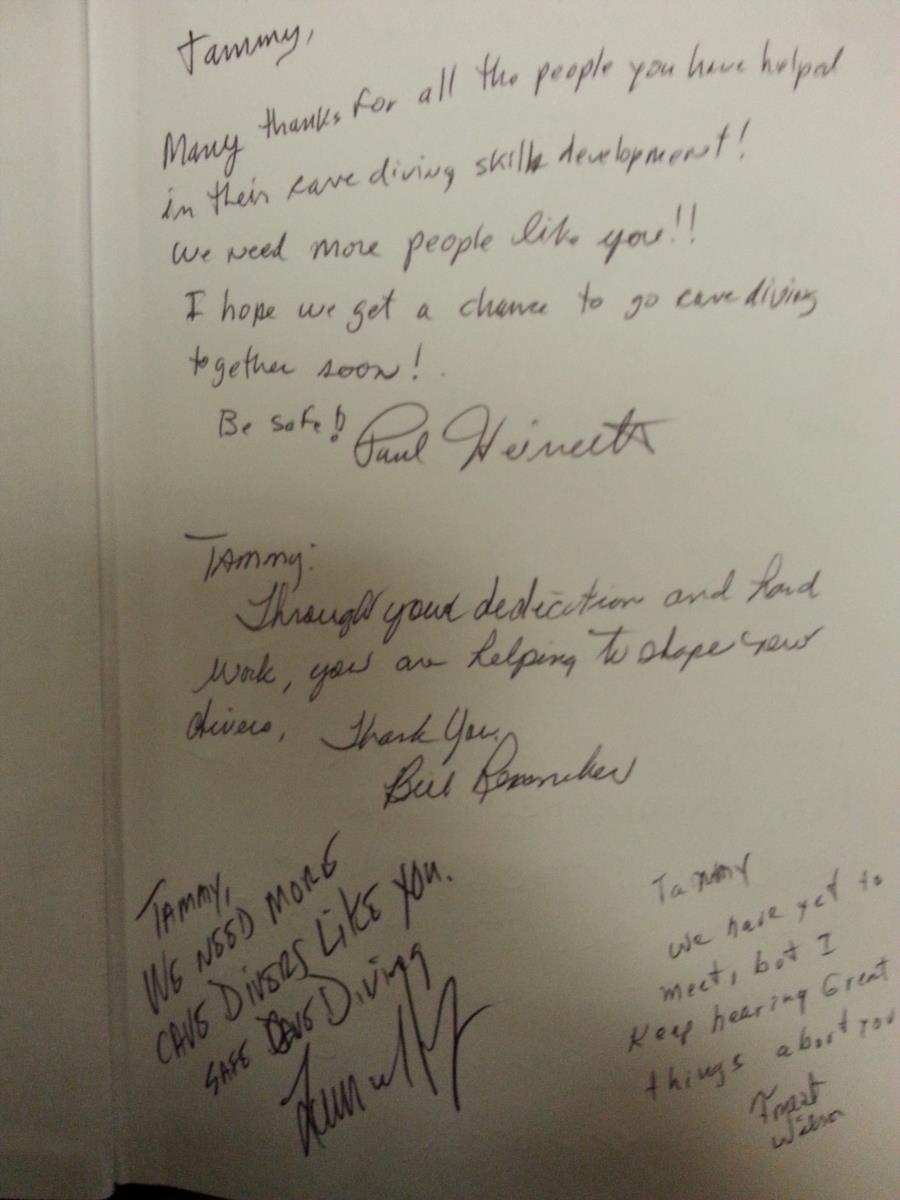 Tammy,
Many thanks for all the people you have helped
in their cave diving skills development!
We need more people like you!!
I hope we get a chance to go cave diving
together soon!
Be safe! Paul Heinerth
Tammy:
Through your dedication and hard
work, you are helping to shape new
divers. Thank You.
Bill
TAMMY,
WE NEED MORE
CAVE DIVERS LIKE YOU.
SAFE CAVE DIVING
Tammy
We have yet to
meet, but I
Keep hearing Great
things about you
Forrest
Wilson